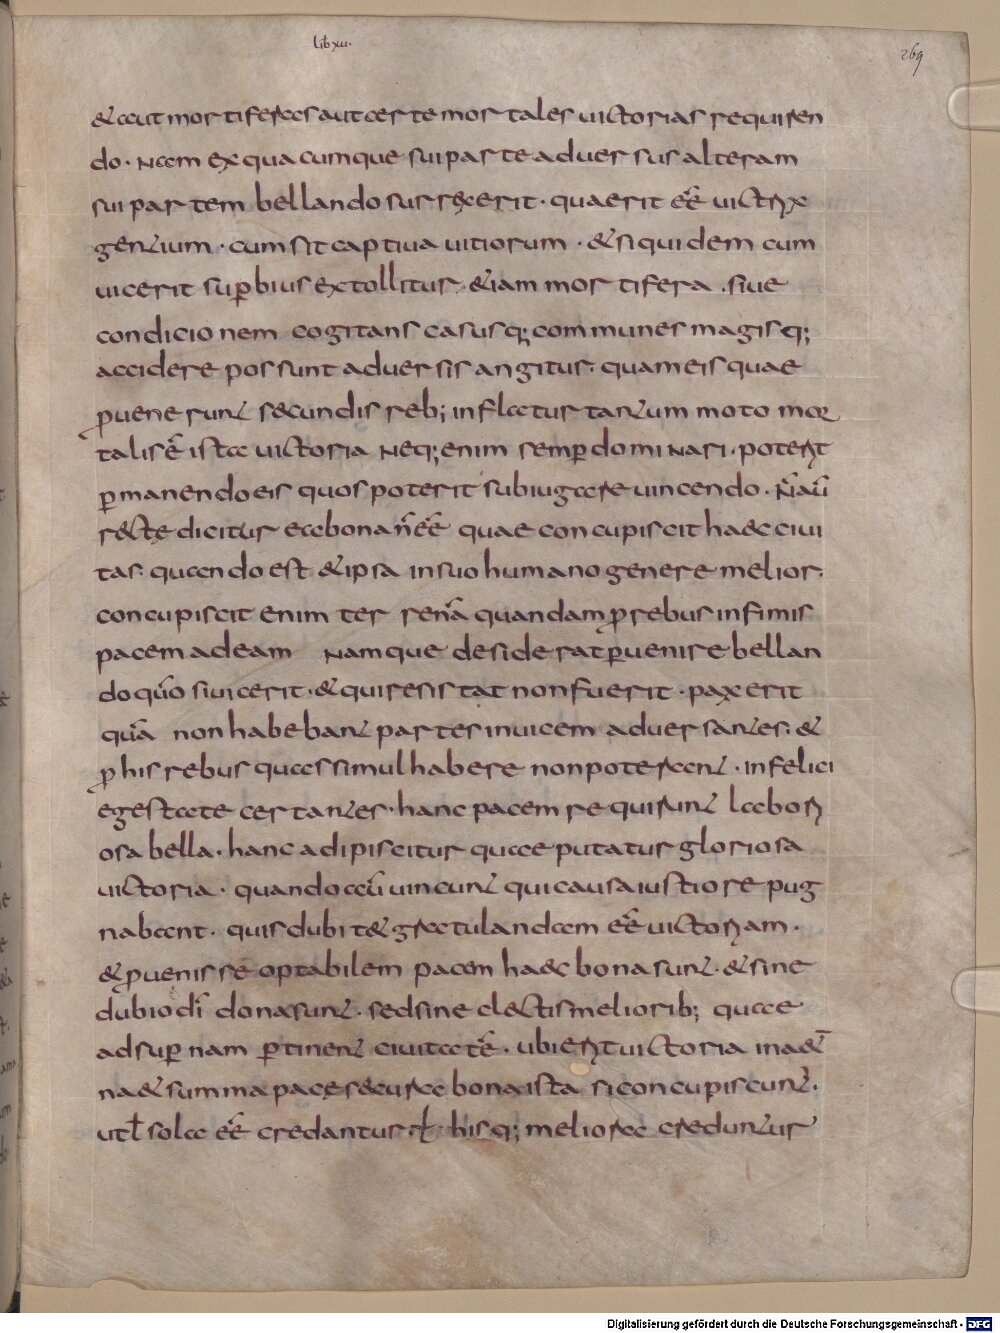 lib xu·
269
& aut mortiferas aut certe mortales uictorias requiren
do · Nam ex quacumque sui parte aduersus alteram
sui partem bellando surrexerit · quaerit eē uictrix
gentium · cum sit captiua uitiorum · & si quidem cum
uicerit sup̄bius extollitur &iam mortifera · siue
condicionem cogitans casusq; communes magisq;
accidere possunt aduersis angitur · quam eis quae
ꝓuenerunt secundis reb; inflatur tantum moto mor
talis ē ista uictoria Neq; enim semp̄ dominari · poterit
p̄manendo eis quos poterit subiugare uincendo · N̄ au̅
recte dicitur ea bona n̄ eē quae concupiscit haec ciui
tas · quando est & ipsa in suo humano genere melior ·
concupiscit enim terrena̅ quandam ꝓ rebus infimis
pacem ad eam Namque desiderat p̄uenire bellan
do quō si uicerit · & qui resistat non fuerit · pax erit
qua̅ non habebant partes inuicem aduersantes · &
ꝓ his rebus quas simul habere non poterant · infelici
egestate certantes · hanc pacem requirunt labori
osa bella · hanc adipiscitur quae putatur gloriosa
uictoria · quando au̅ uincunt qui causa iustiore pug
nabant · quis dubit& gratulandam eē uictoriam ·
& ꝓuenisse optabilem pacem haec bona sunt · & sine
dubio di̅ dona sunt · sed sine electis meliorib; quae
ad sup̄nam p̄tinent ciuitate̅ · ubi erit uictoria in aet̅
na & summa pace secura bona ista si concupiscunt ·
ut ł sola eē credantur ł his q; meliora creduntur
Digitalisierung gefördert durch die Deutsche Forschungsgemeinschaft - DFG